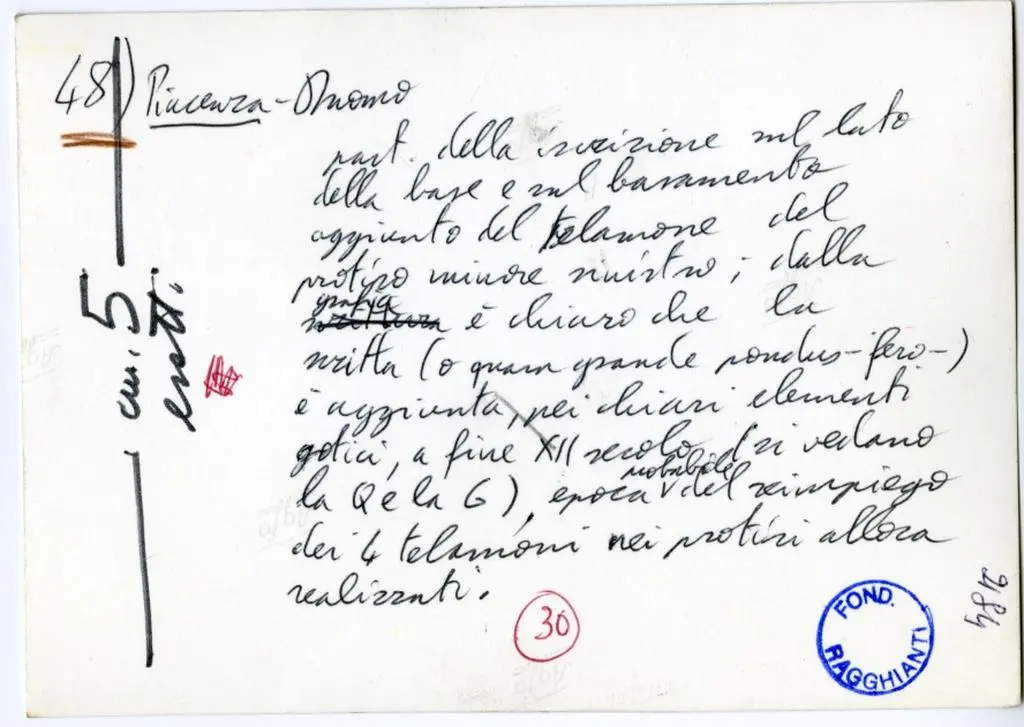 48) Piacenza - Duomo
part. della iscrizione sul lato
della base e sul basamento
aggiunto del telamone del
protiro minore sinistro; dalla
grafia
è chiaro che la
scritta (o quam grande pondus-fero-)
è aggiunta, pei chiari elementi
gotici, a fine XII secolo (si vedano
la Q e la G), epoca probabile del reimpiego
dei 4 telamoni nei protiri allora
realizzati.
cm. 5
esatti.
30
FOND.
RAGGHIANTI
2184